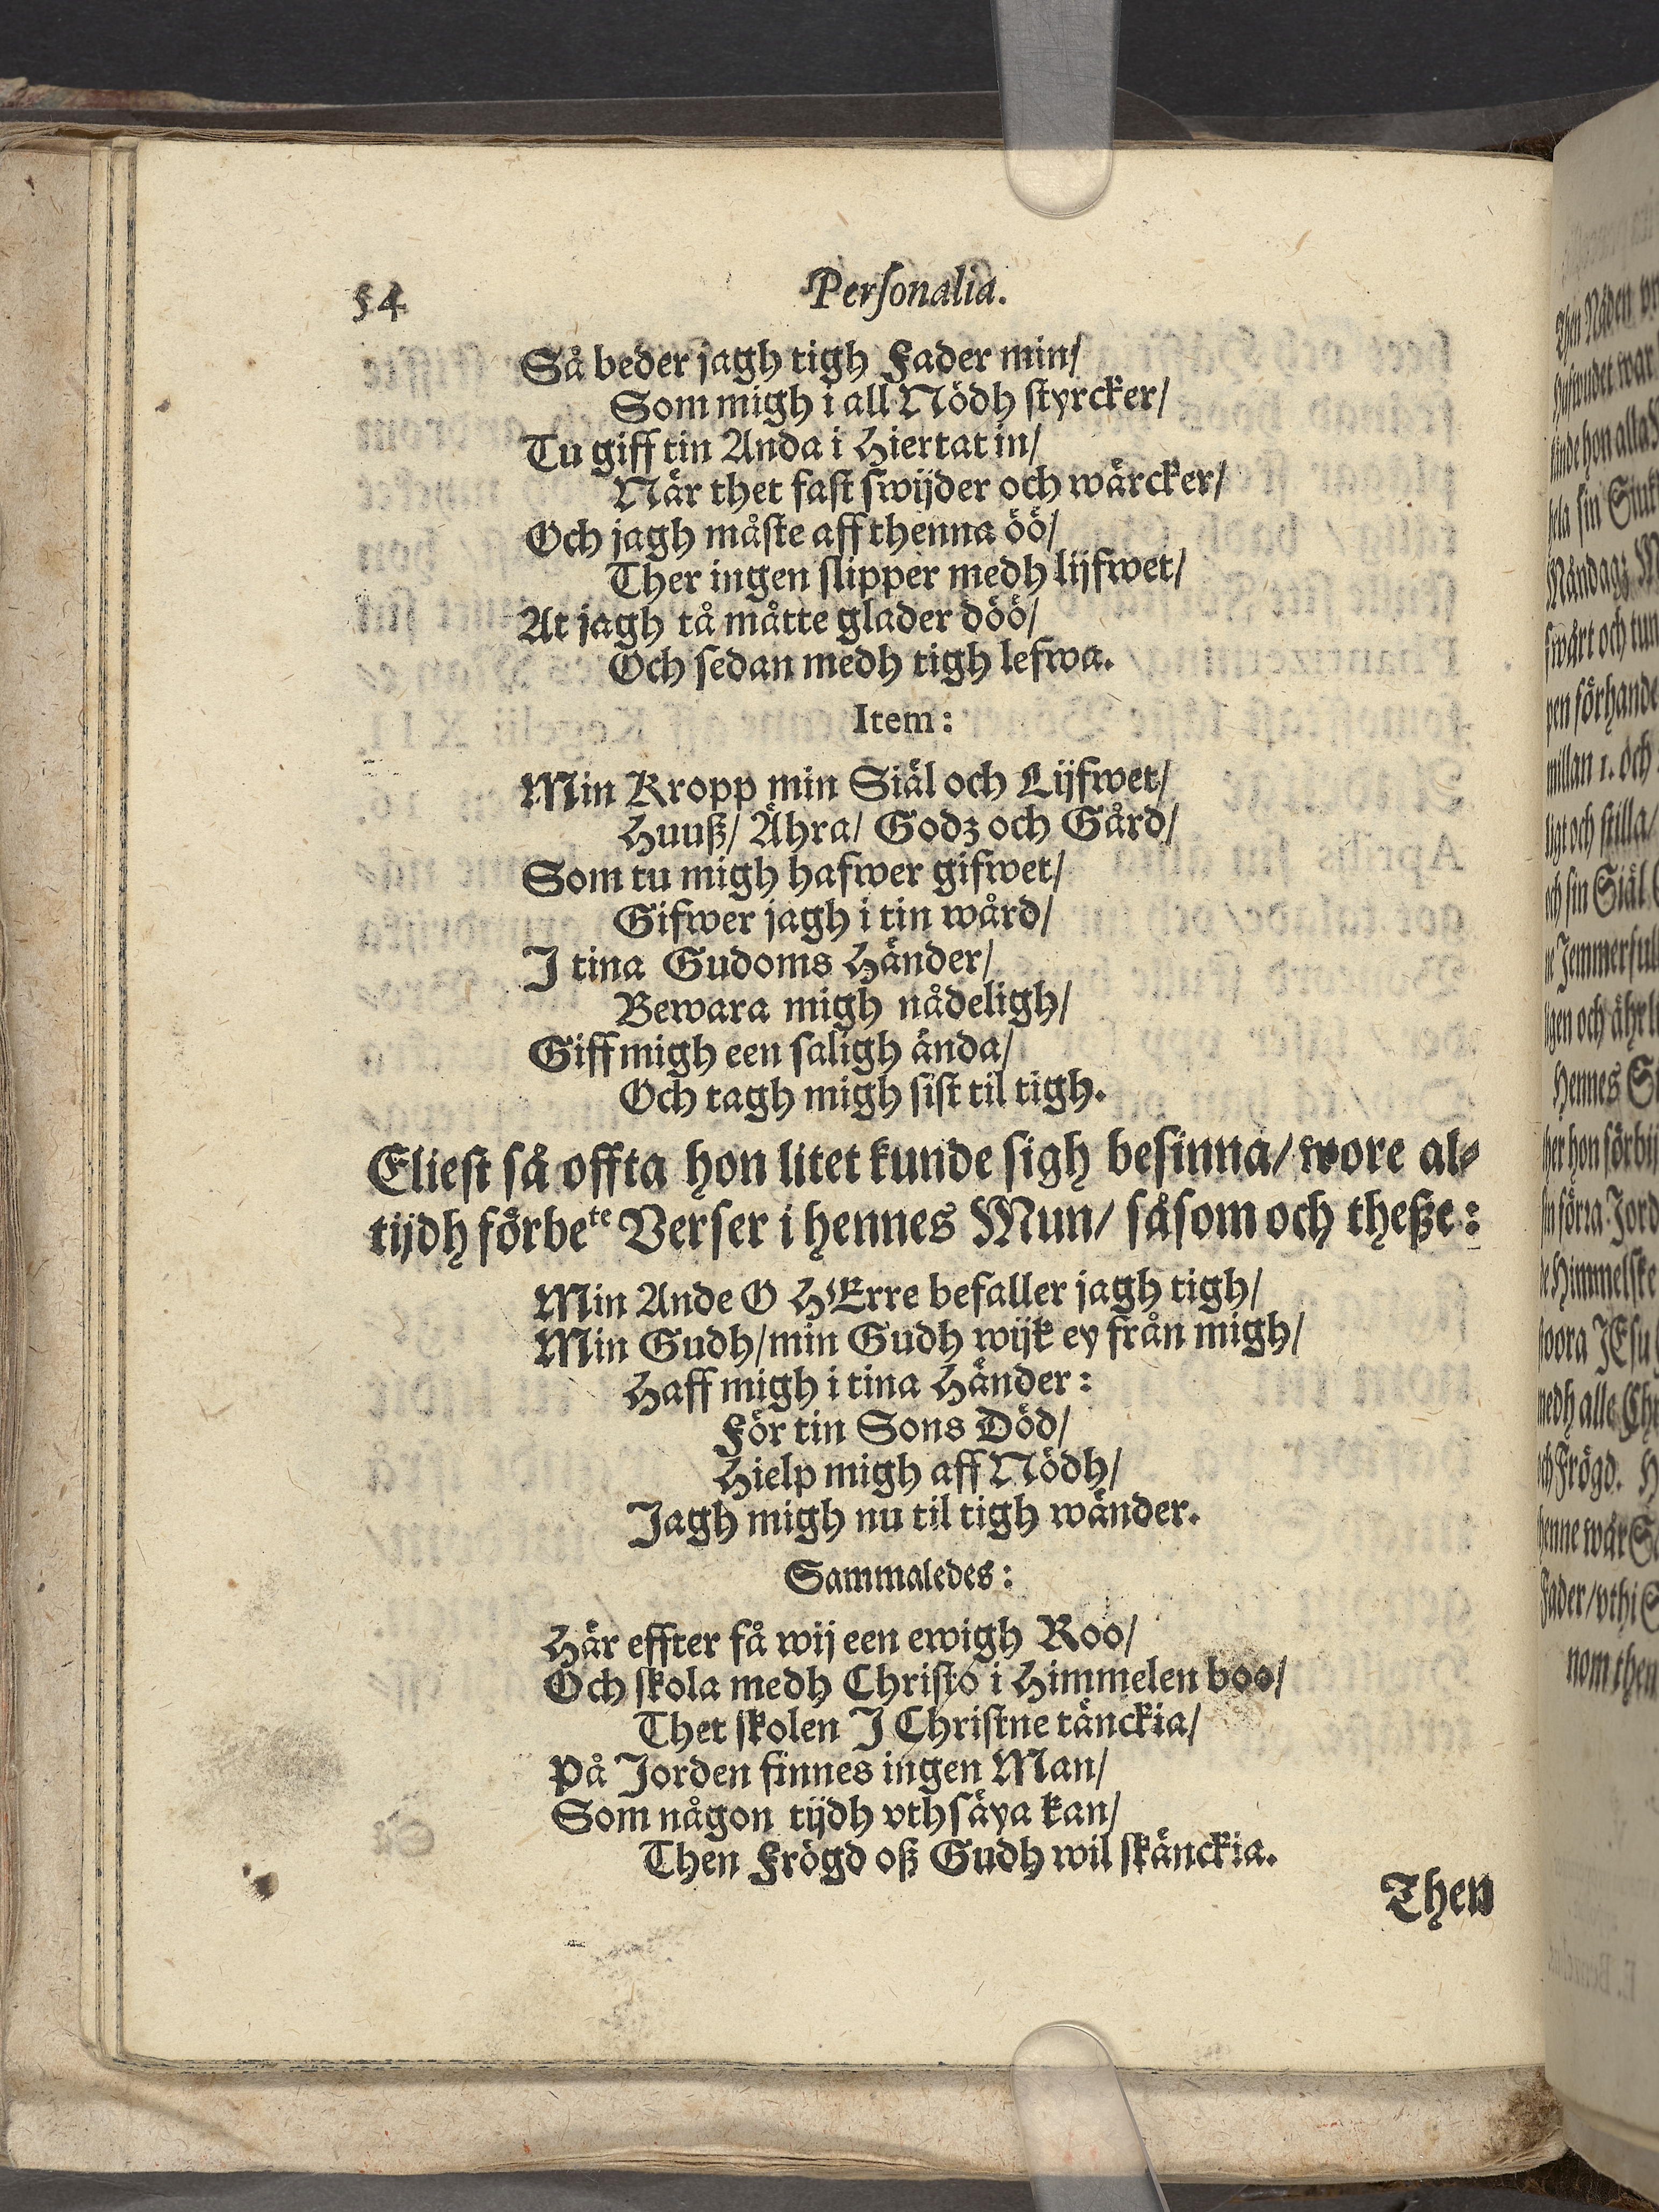 54 Personalia.
Så beder jagh tigh Fader min/
Som migh i all Nödh styrcker/
Tu giff tin Anda i Hiertat in/
När thet fast swijder och wärcker/
Och jagh måste aff thenna öö/
Ther ingen slipper medh lijfwet/
At jagh tå måtte glader döö/
Och sedan medh tigh lefwa.
Item:
Min Kropp min Siäl och Lijfwet/
Huuß/ Ähra/ Godz och Gård/
Som tu migh hafwer gifwet/
Gifwer jagh i tin wård/
J tina Gudoms Händer/
Bewara migh nådeligh/
Giff migh een saligh ända/
Och tagh migh sist til tigh.
Eliest så offta hon litet kunde sigh besinna/ wore al-
tijdh förbete Verser i hennes Mun/ såsom och theße:
Min Ande O HErre befaller jagh tigh/
Min Gudh/ min Gudh wijk ey från migh/
Haff migh i tina Händer:
För tin Sons Död/
Hielp migh aff Nödh/
Jagh migh nu til tigh wänder.
Sammaledes:
Här effter få wij een ewigh Roo/
Och skola medh Christo i Himmelen boo/
Thet skolen J Christne tänckia/
På Jorden finnes ingen Man/
Som någon tijdh vthsäya kan/
Then Frögd oß Gudh wil skänckia.
Then